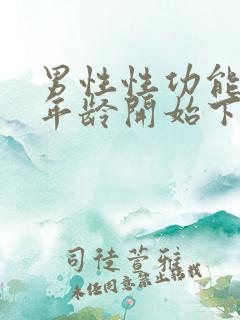 男性性功能
年龄開始下
司徒萱雅
未经同意禁止转载